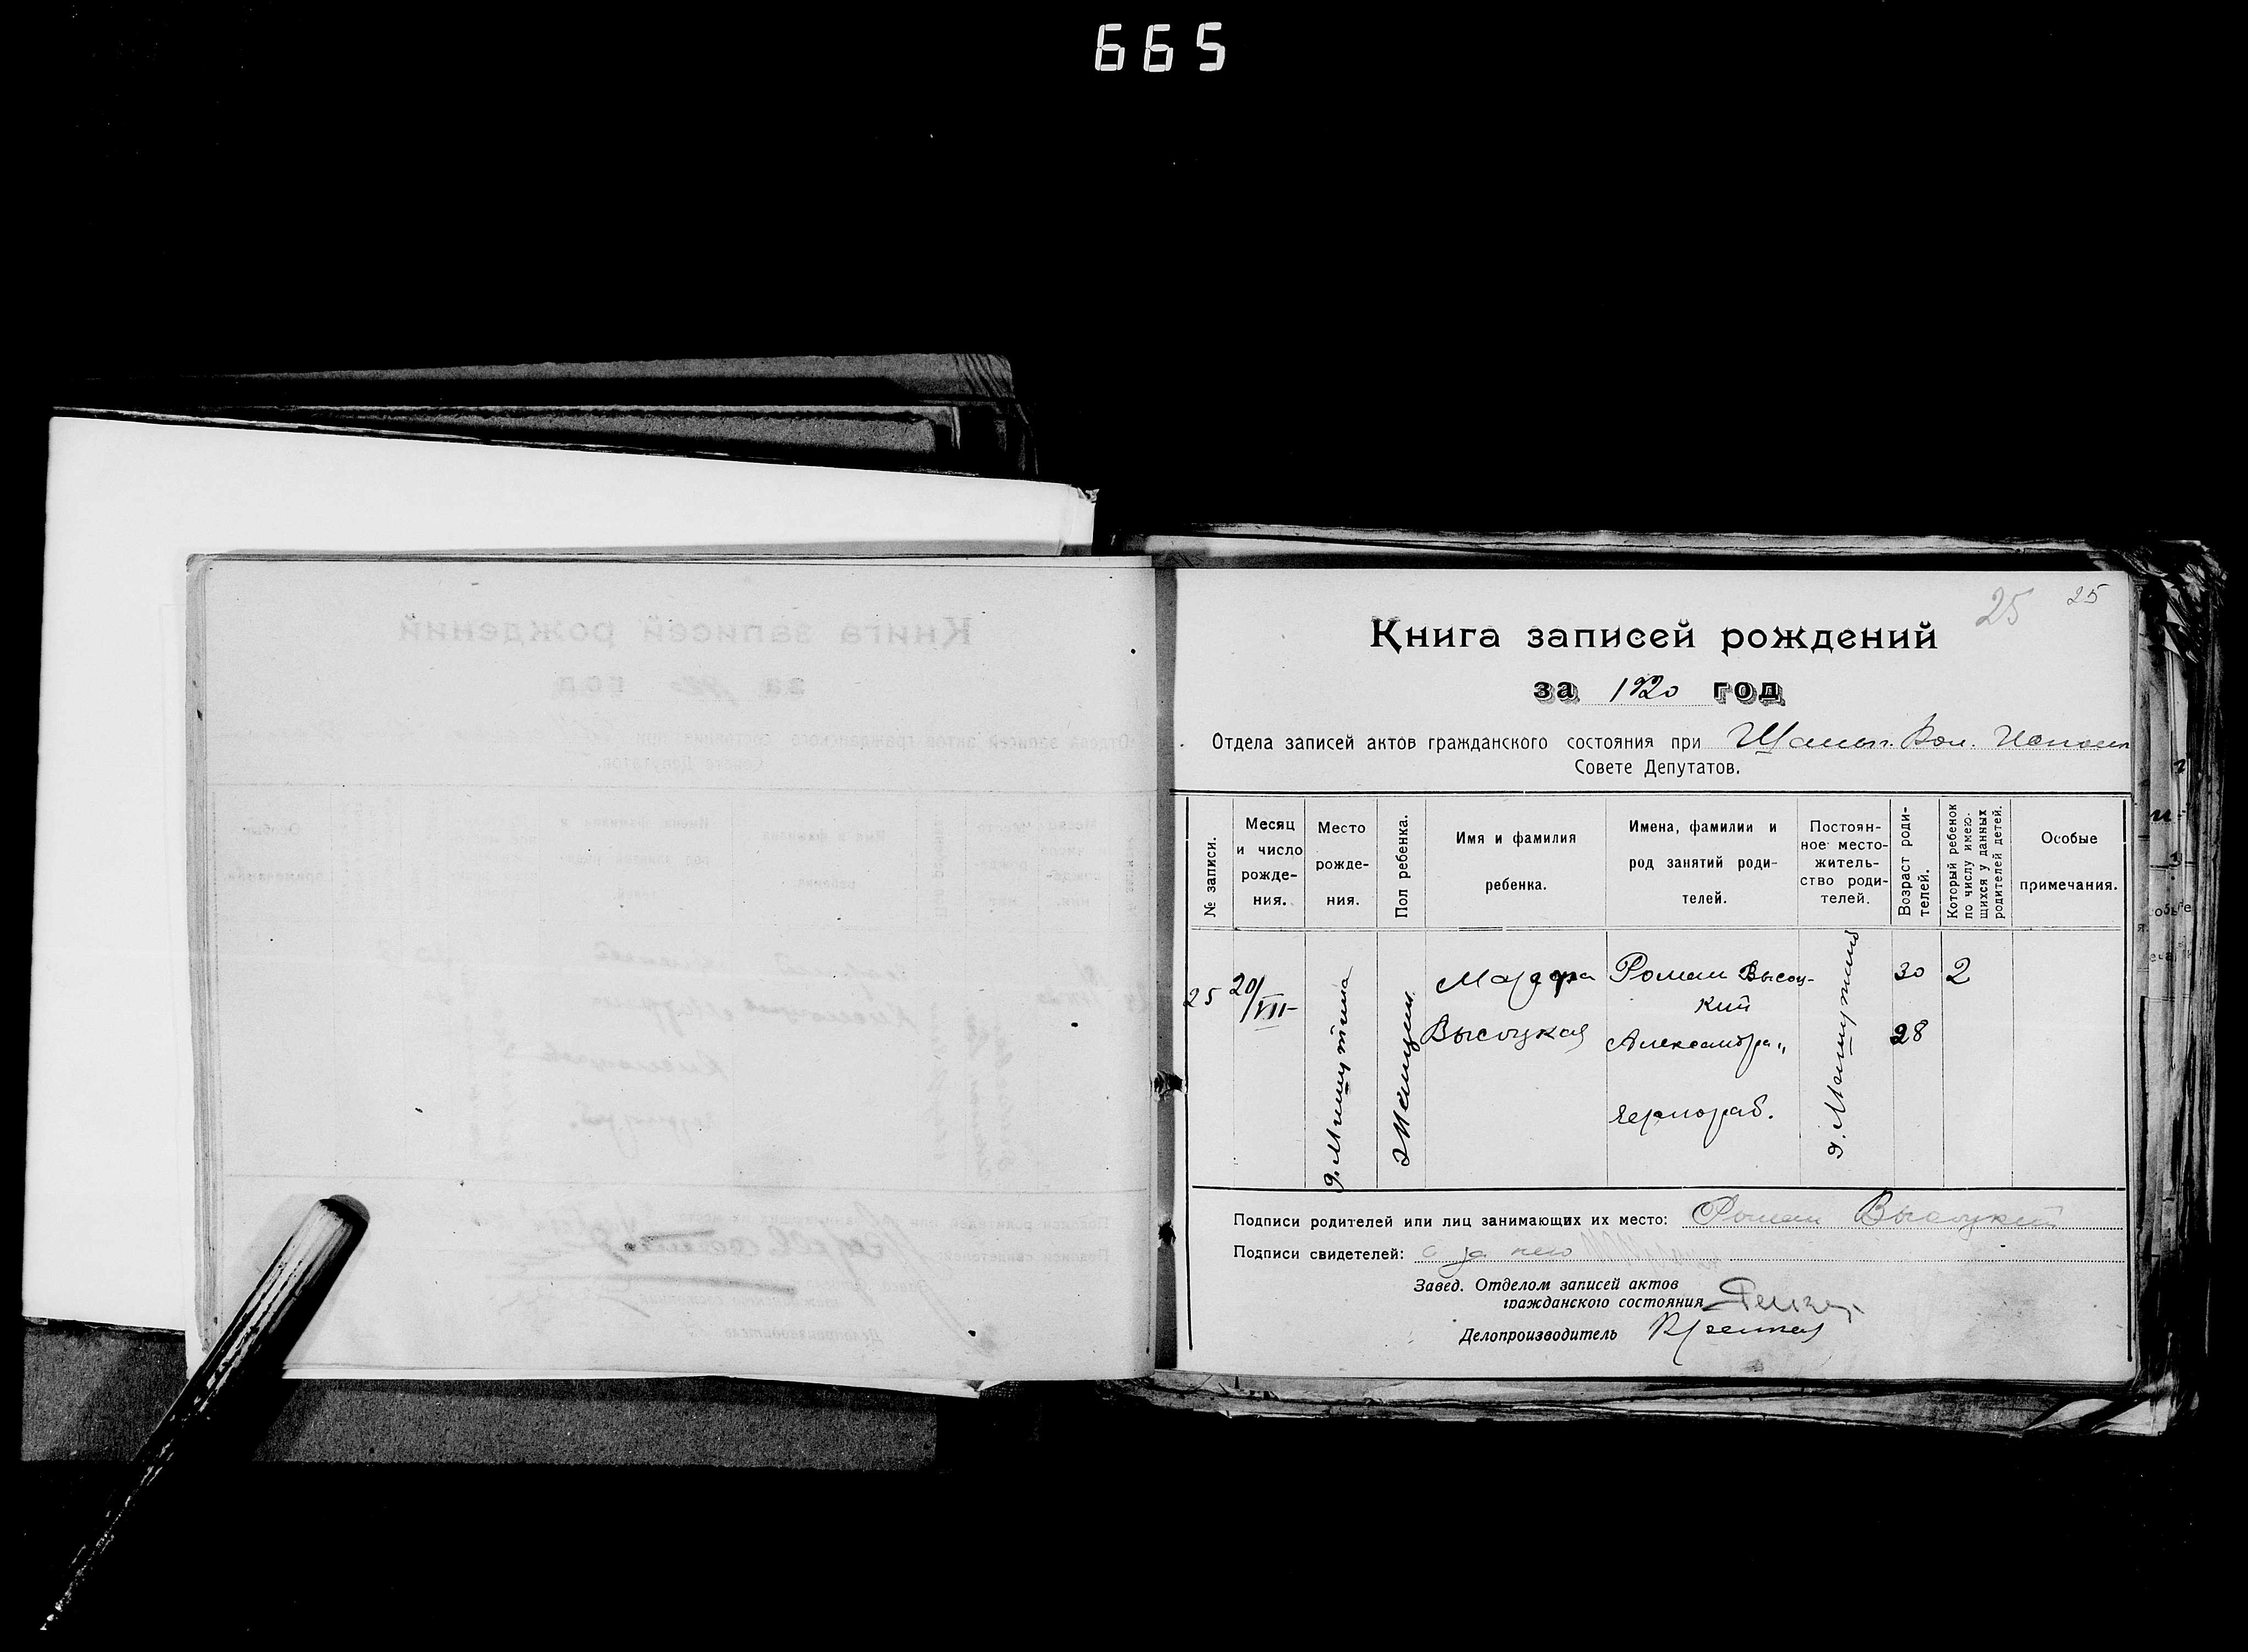 665
25 25
Книга записей рождений
за 1920 год
Отдела записей актов гражданского состояния при Вол.
Совете Депутатов.
№ записи.
Месяц и число рожде-ния.
Место рожде-ния.
Пол ребенка.
Имя и фамилия ребенка.
Имена, фамилии и род занятий роди-телей.
Постоян-ное место-житель-ство роди-телей.
Возраст роди-телей.
Который ребенок по числу имею-щихся у данных родителей детей.
Особые примечания.
25
20/VII
д. Мишутина
Женщин.
Марфа
Высоцкая
Роман Высоц-
кий
Александра "
чернораб.
30
28
2
Подписи родителей или лиц занимающих их место: Роман Высоцкий
Подписи свидетелей: за него
Завед. Отделом записей актов
гражданского состояния
Делопроизводитель